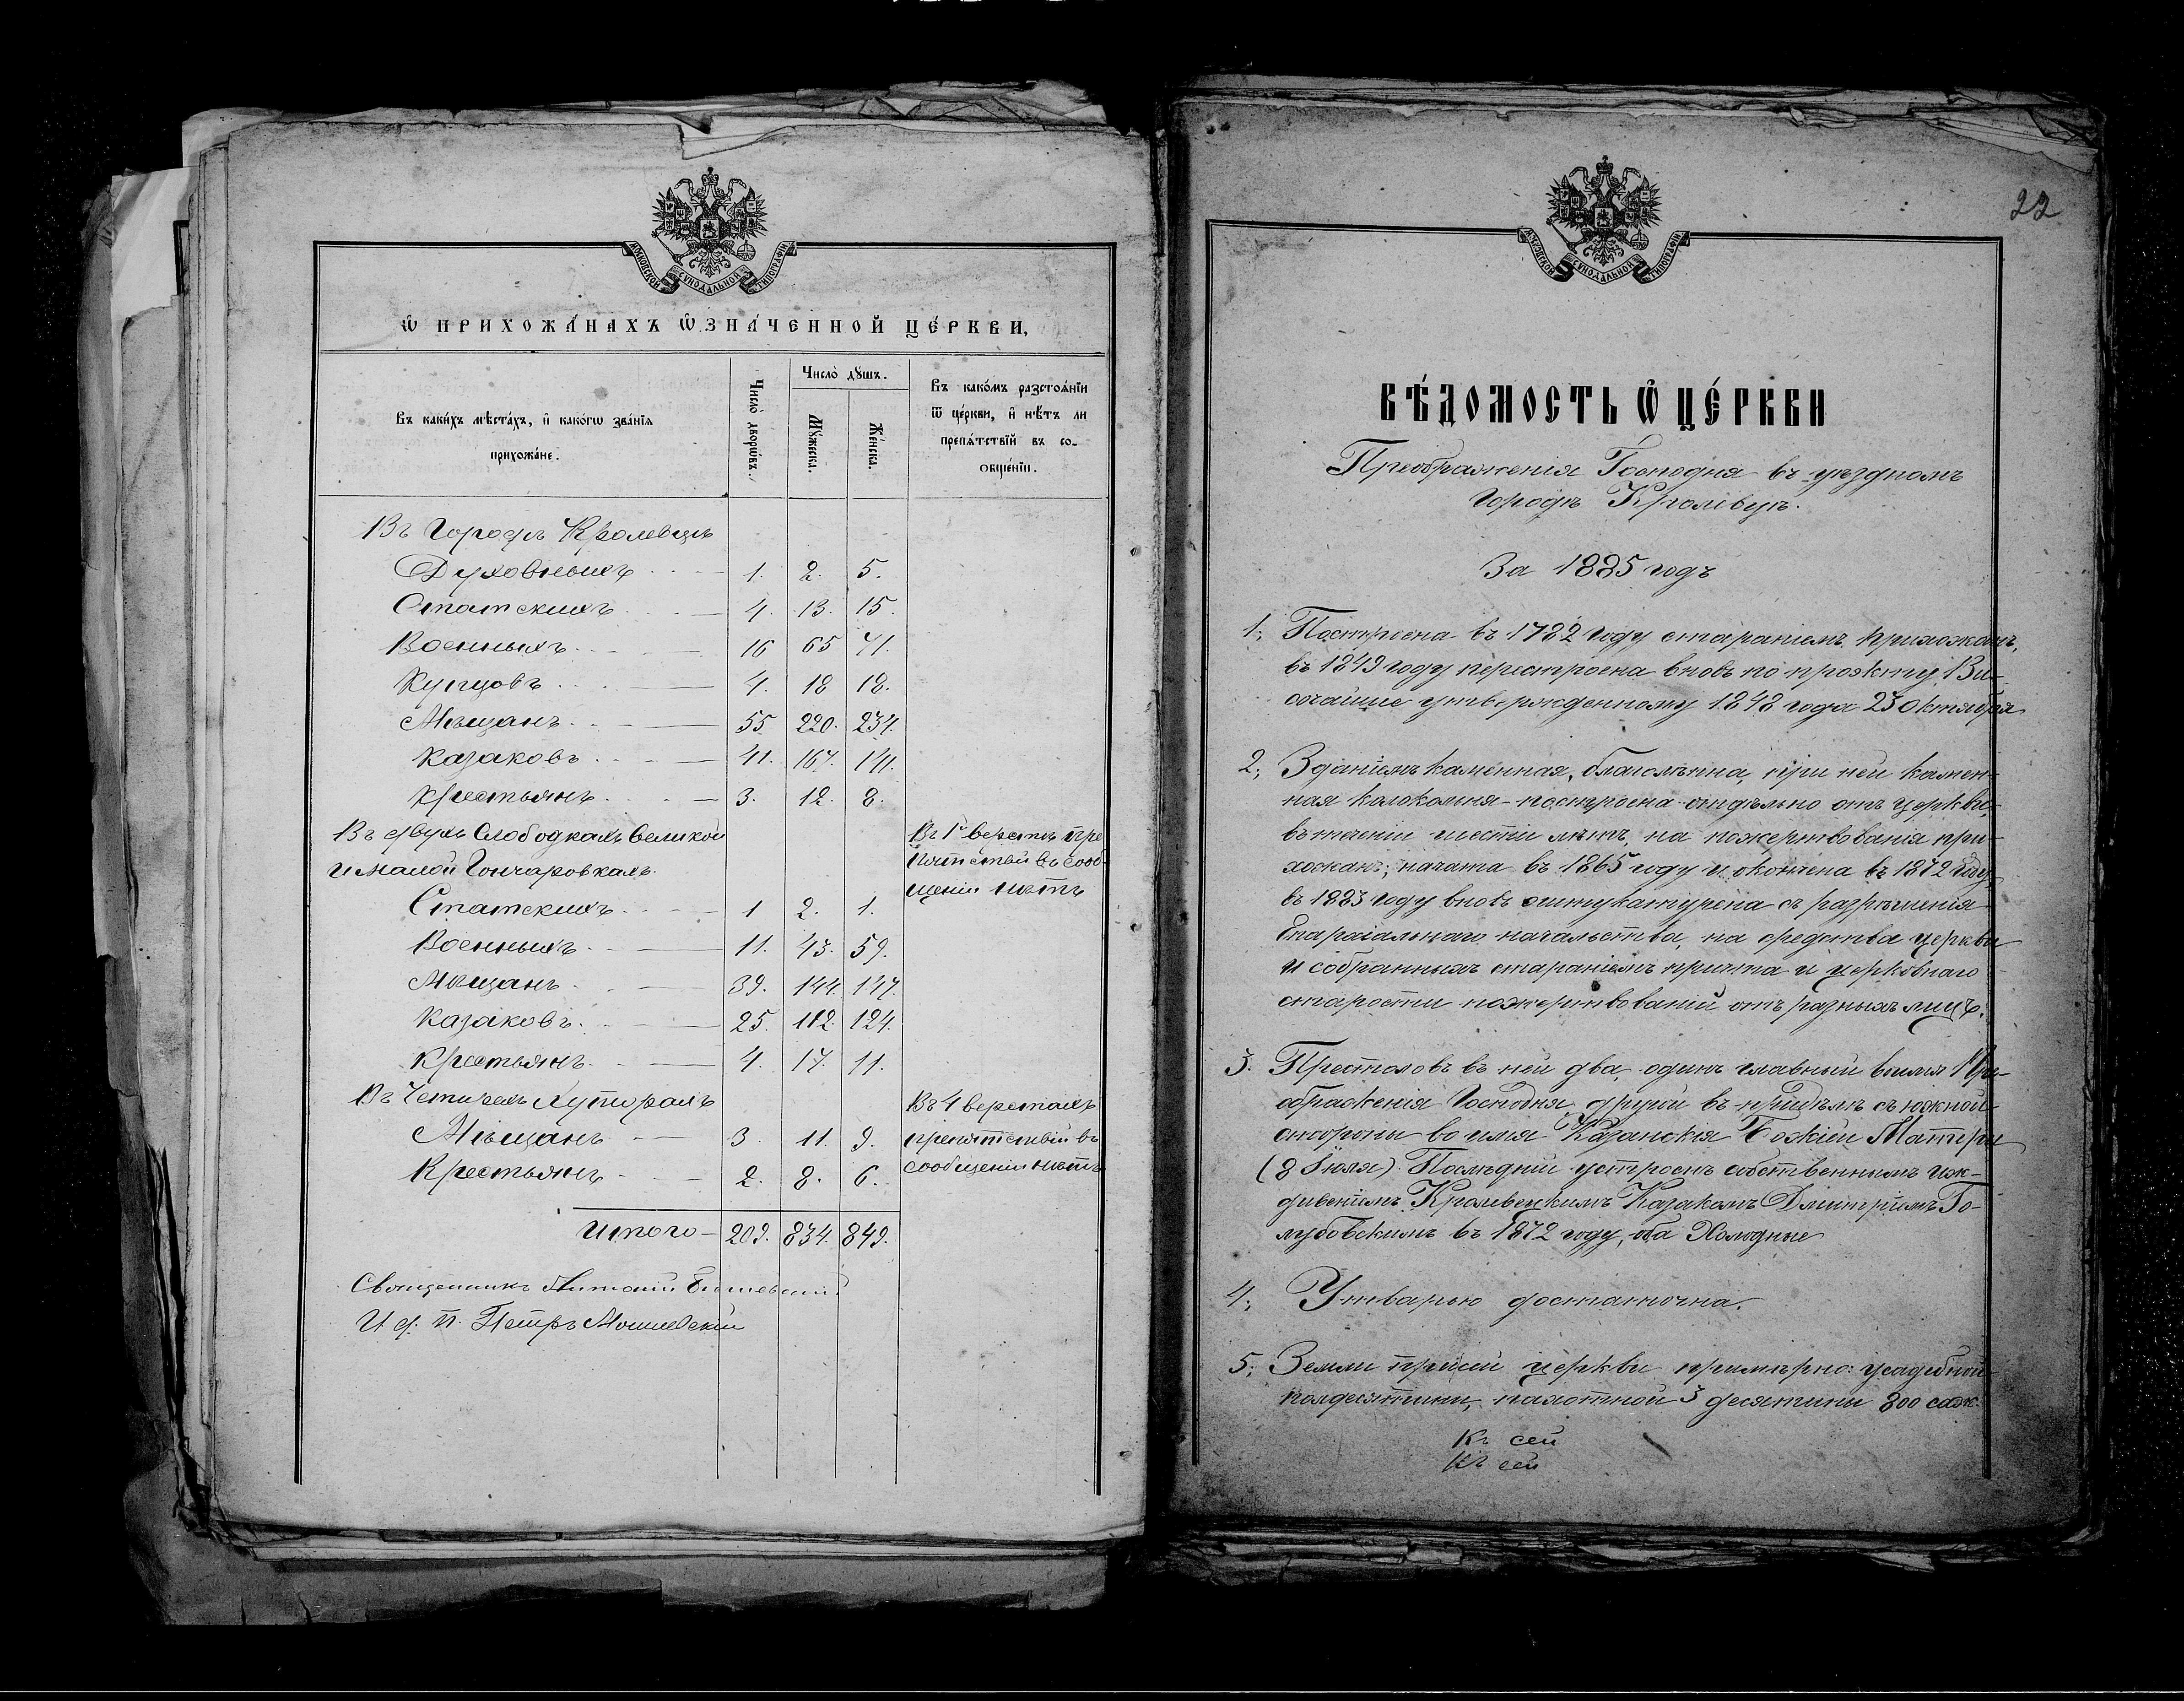 МОСКОВСКОЙ СѴНОДАЛЬНОЙ ТИПОГРАФІИ
Ѡ ПРИХОЖА́НАХЪ Ѡ҆ЗНА́ЧЕННОЙ ЦЕ́РКВИ,
Въ каки́хъ мѣста́хъ, и҆ како́гѡ зва́нїѧ
прихожа́не.
Число̀ дворѡ́въ.
Число̀ дꙋшъ.
Мꙋ́жеска.
Же́нска.
Въ како́мъ разстоѧ́нїи
ѿ це́ркви, и҆ нѣ́тъ ли
препѧ́тствїй въ со-
ѻбще́нїи.
Въ Городѣ Кролевцѣ
Духовныхъ 1. 2. 5.
Статскихъ 4. 13. 15.
Военныхъ 16 65 71.
Купцовъ 4. 18 18.
Мѣщанъ 55 220. 234.
Казаковъ 41. 167. 141.
Крестьянъ 3. 12. 8.
Въ двухъ Слободкахъ Великой Въ 1й верстѣ пре
и малой Гончаровкахъ. пятствій въ сооб
щеніи нѣтъ
Статскихъ 1 2. 1.
Военныхъ 11. 43. 59.
Мѣщанъ 39. 144. 147.
Казаковъ 25. 112. 124.
Крестьянъ 4. 17. 11.
Въ Хуторахъ Въ 4 верстахъ
Мѣщанъ 3. 11. 9. препятствій въ
Крестьянъ 2. 8. 6. сообщеніи нѣтъ
Итого 209. 834. 849.
Священникъ Антоній
И. д. п. Петръ
22
МОСКОВСКОЙ СѴНОДАЛЬНОЙ ТИПОГРАФІИ
ВѢ́ДОМОСТЬ Ѡ҆ ЦЕ́РКВИ
Преображенія Господня въ уѣздномъ
Городѣ Кролевцѣ.
За 1885 годъ
1; Построена въ 1782 году стараніемъ прихожанъ,
въ 1849 году перестроена вновь по проэкту, Вы-
сочайше утвержденному 1848 года 23 Октября
2; Зданіемъ каменная, благолѣпна, при ней камен-
ная колокольня построена отдѣльно отъ церкви,
въ теченіи шести лѣтъ, на пожертвованія при-
хожанъ; начата въ 1865 году и окончена въ 1872 году,
въ 1883 году вновь оштукатурена съ разрѣшенія
Епархіальнаго начальства, на средства церкви
и собранныхъ стараніемъ причта и церковнаго
старосты пожертвованій отъ разныхъ лицъ.
3. Престоловъ въ ней два, одинъ главный во имя Пре-
ображенія Господня, другой въ придѣлѣ съ южной
стороны во имя Казанскія Божіей Матери
(8 Іюля). Послѣдній устроенъ собственнымъ иж-
дивеніемъ Кролевецкимъ Казакомъ Дмитріемъ Го-
лубовскимъ въ 1872 году, оба Холодные
4; Утварью достаточна.
5; Земли при сей церкви примѣрно: усадебной
полдесятины, пахотной 3 десятины 800 саж.
Къ сей
Къ сей